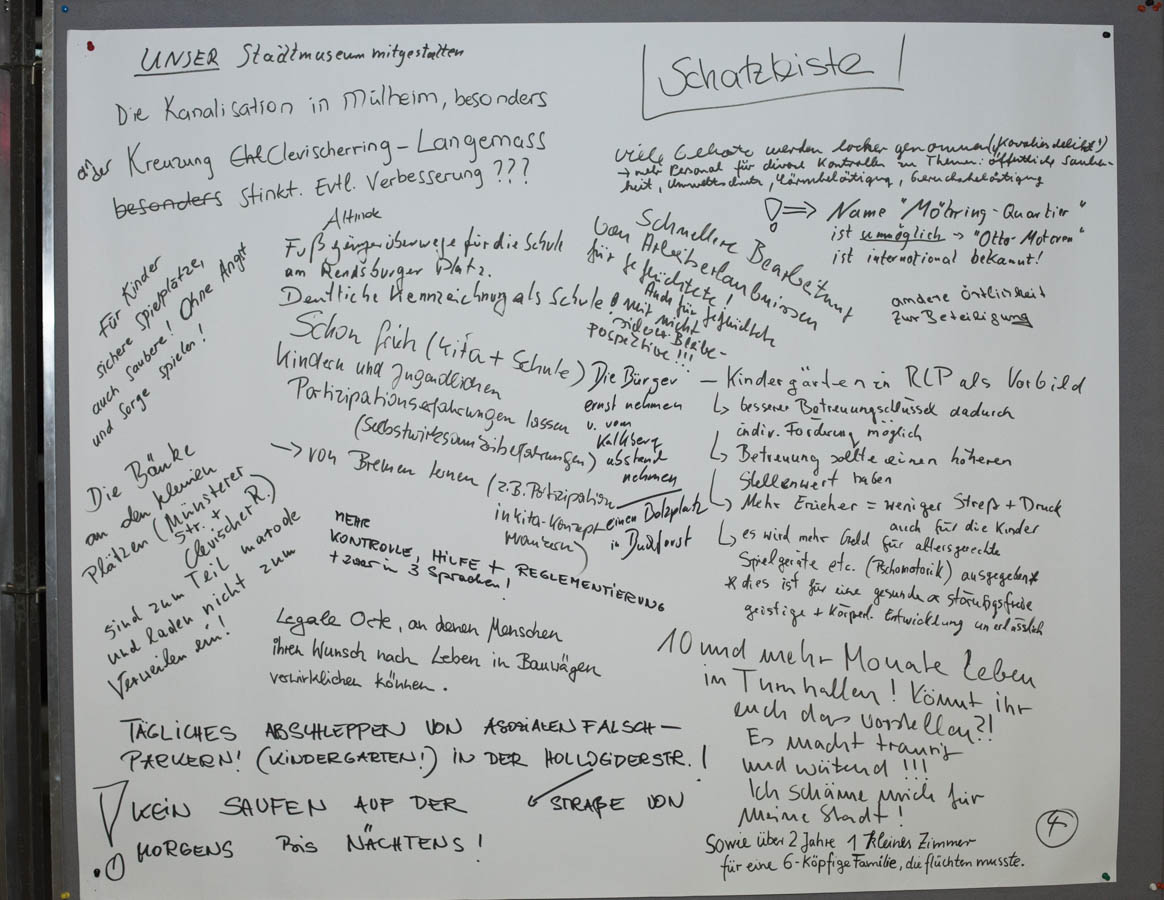 UNSER Stadtmuseum mitgestalten
Schatzkiste!
Die Kanalisation in Mülheim, besonders
an der Kreuzung Clevischerring – Langemass
besonders stinkt. Evtl. Verbesserung ???
viele Gebote werden locker genommen (Kavaliersdelikt!)
→ mehr Personal für diverse Kontrollen zu Themen: öffentliche Sauber-
heit, Umweltschutz, Lärmbelästigung, Geruchsbelästigung
! ⇒ Name "Möhring-Quartier"
ist unmöglich → "Otto-Motoren"
ist international bekannt!
andere Örtlichkeit
zur Beteiligung
Fußgängerüberwege für die Schule
am Rendsburger Platz.
Deutliche Kennzeichnung als Schule!
Schnellere Bearbeitung
von Arbeitserlaubnissen
für geflüchtete!
Auch für geflüchtete
mit nicht
sicherer Bleibe-
perspektive!!!
Für Kinder
sichere Spielplätze,
auch saubere! Ohne Angst
und Sorge spielen!
Schon früh (Kita + Schule)
Kindern und Jugendlichen
Partizipationserfahrungen lassen
→ von Bremen lernen (z.B. Partizipation
in Kita-Konzept
Die Bürger
ernst nehmen
u. vom
Kalkberg
abstand
nehmen
einen Bolzplatz
in Buchforst
– Kindergärten in RLP als Vorbild
↳ besserer Betreuungschlüssel dadurch
indiv. Förderung möglich
↳ Betreuung sollte einen höheren
Stellenwert haben
↳ Mehr Erzieher = weniger Streß + Druck
auch für die Kinder
↳ es wird mehr Geld für altersgerechte
Spielgeräte etc. (Pschomotorik) ausgegeben*
* dies ist für eine gesunde
geistige + Körperl. Entwicklung unerlässlich
Die Bänke
an den kleinen
Plätzen (Münsterer
Str. +
Clevischer R.)
sind zum Teil marode
und laden nicht zum
Verweilen ein!
MEHR
KONTROLLE, HILFE + REGLEMENTIERUNG
+ zwar in 3 Sprachen!
Legale Orte, an denen Menschen
ihren Wunsch nach Leben in Bauwägen
verwirklichen können.
10 und mehr Monate Leben
in Turnhallen! Könnt ihr
euch das vorstellen?!
Es macht traurig
und wütend!!!
Ich schäme mich für
meine Stadt!
Sowie über 2 Jahre 1 kleines Zimmer
für eine 6-köpfige Familie, die flüchten musste.
TÄGLICHES ABSCHLEPPEN VON ASOZIALEN FALSCH–
PARKERN! (KINDERGARTEN!) IN DER STR.!
! KEIN SAUFEN AUF DER STRAßE VON
MORGENS BIS NÄCHTENS!
4